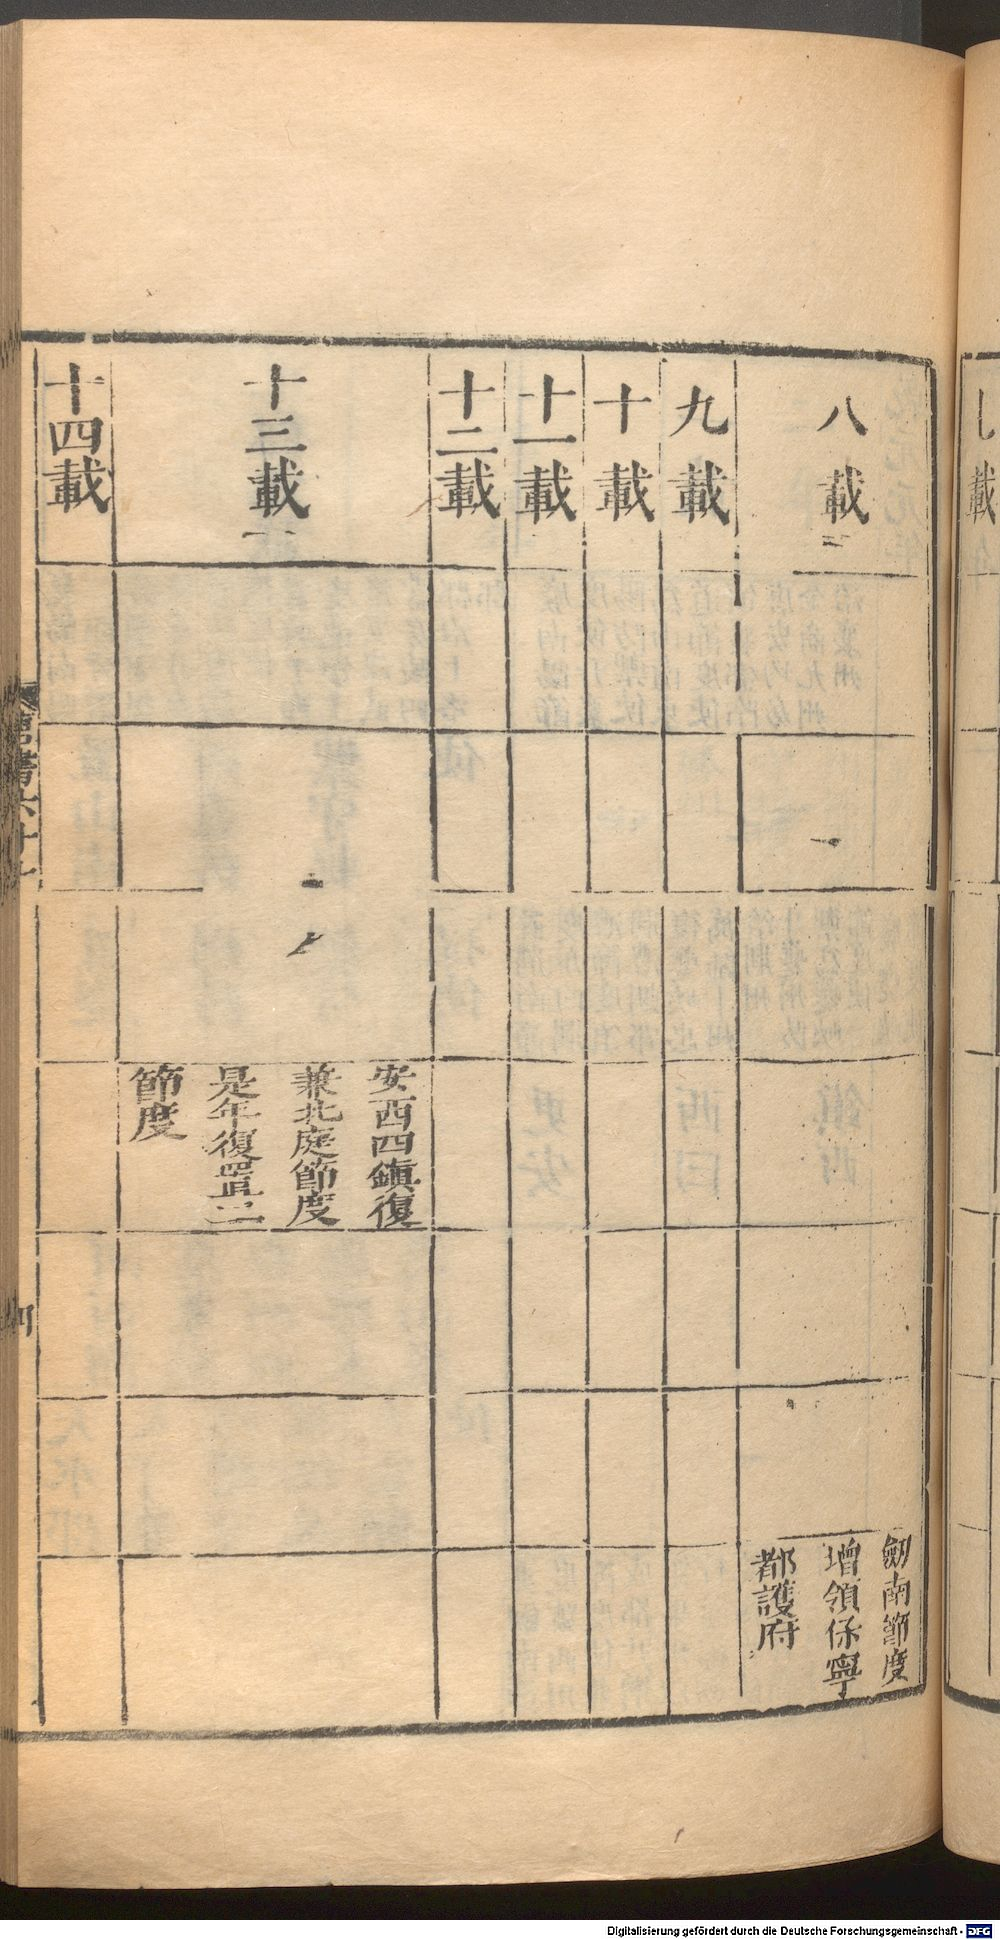 八載
劒南節度
增領保寧
都護府
九載
十載
十一載
十二載
十三載
安西四鎮復
兼北庭節度
是年復置二
節度
十四載
載
Digitalisierung gefördert durch die Deutsche Forschungsgemeinschaft - DFG